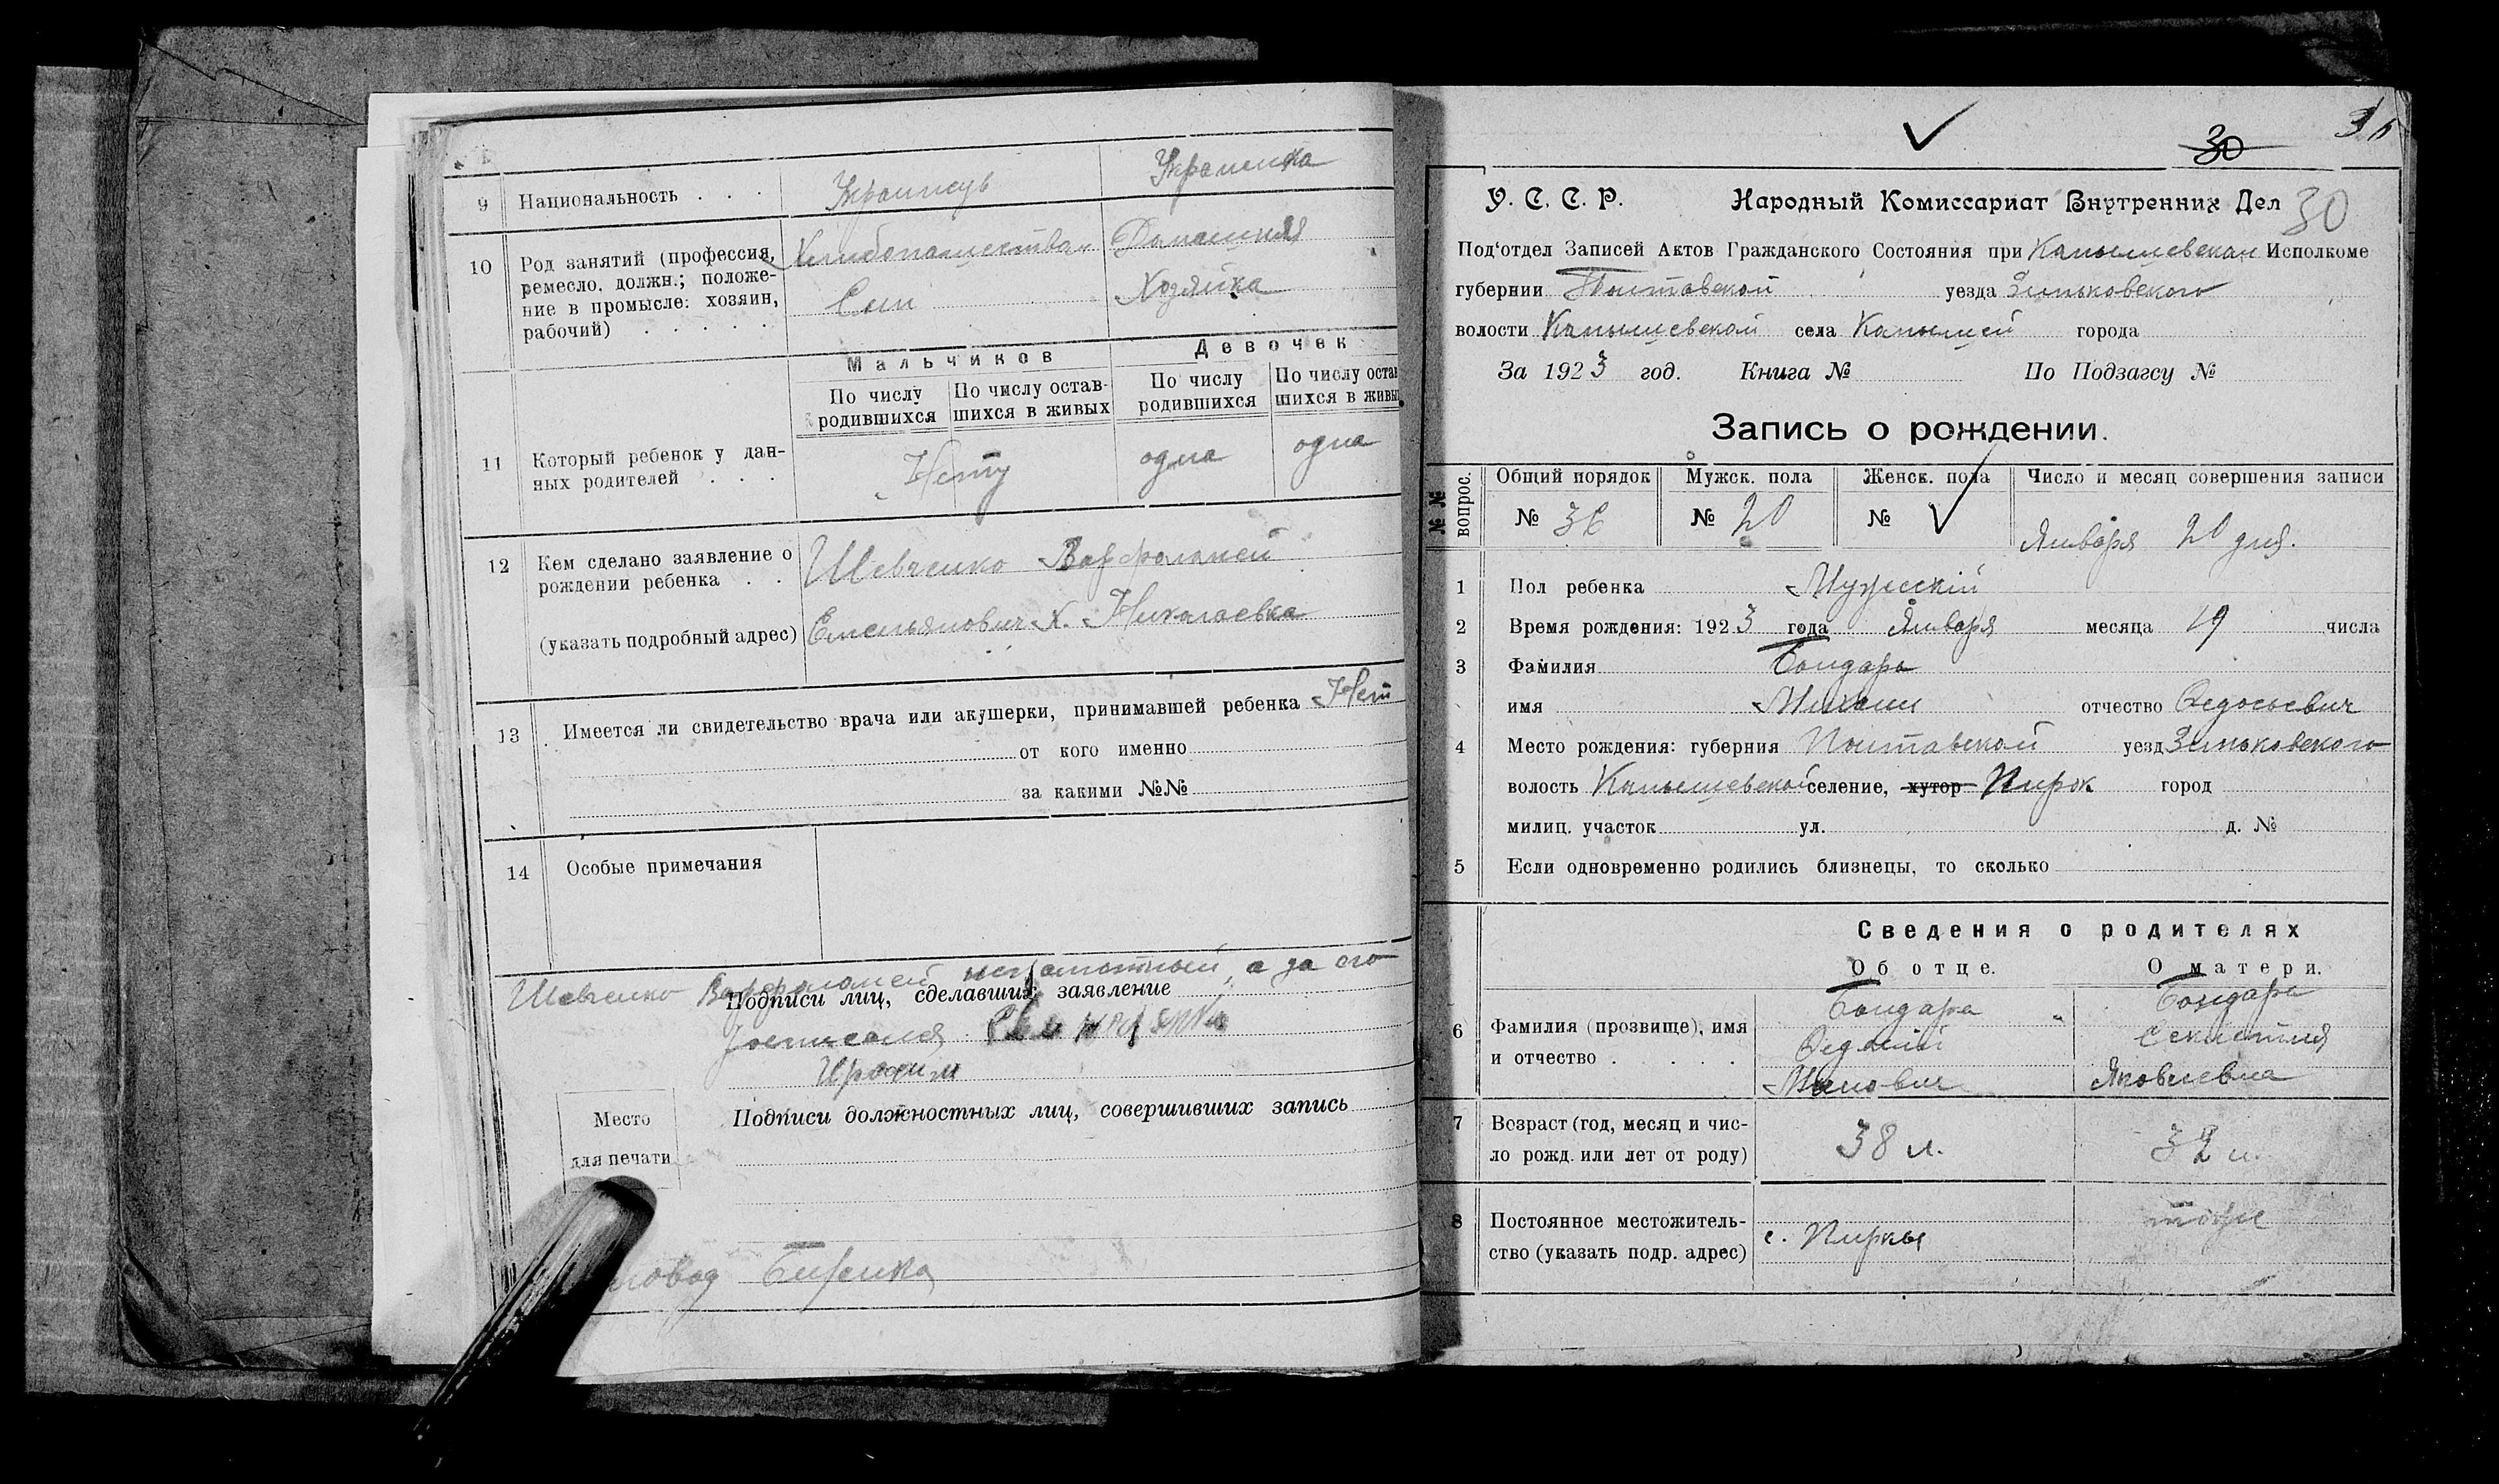 9 Национальность . . Украинцъ Украинка
10 Род занятий (профессия, ремесло, должн.; положе-
ние в промысле: хозяин,
рабочий) . . . . .
Домашняя
Хозяйка
Мальчиков Девочек
По числу родившихся По числу остав-шихся в живых По числу родившихся По числу остав
шихся в живы
11 Который ребенок у дан-
ных родителей . . . Нету одна одна
12 Кем сделано заявление о
рождении ребенка . . Шевченко Варфоломей
(указать подробный адрес) Емельянович х. Николаевка
13 Имеется ли свидетельство врача или акушерки, принимавшей ребенка Нет
от кого именно
за какими №№
14 Особые примечания
Шевченко Варфоломей неграмотный, а за его
Подписи лиц, сделавших заявление
росписался
Место
для печати
Подписи должностных лиц, совершивших запись
36
30
У. С. С. Р. Народный Комиссариат Внутренних Дел 30
Под'отдел Записей Актов Гражданского Состояния при Исполкоме
губернии Полтавской уезда Зеньковского
волости села города
За 1923 год. Книга № По Подзагсу №
Запись о рождении.
№№ вопрос. Общий порядок Мужск. пола Женск. пола Число и месяц совершения записи
№ 36 № 20 № Января 20 дня.
1 Пол ребенка Мужескій
2 Время рождения: 1923 года Января месяца 19 числа
3 Фамилия Бондарь
имя отчество Федосьевич
4 Место рождения: губерния Полтавской уезд Зеньковского
волость селение, хутор Пирок город
милиц. участок ул. д. №
5 Если одновременно родились близнецы, то сколько
Сведения о родителях
Об отце. О матери.
6 Фамилия (прозвище), имя
и отчество . . . . .
Бондарь Бондарь
Яковлевна
7 Возраст (год, месяц и чис-
ло рожд. или лет от роду) 38 л. 32 л.
8 Постоянное местожитель-
ство (указать подр. адрес) с. Пирки тоже